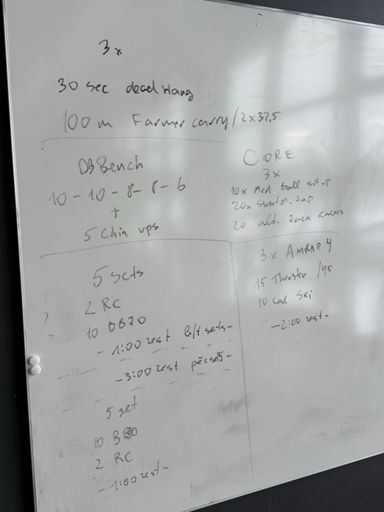 3x
30 sec dead Hang
100 m Farmer carry / 2x32,5
DB Bench
10 - 10 - 8 - 8 - 6
+
5 Chin ups
CORE
3x
10x Med. ball sit up
20x tap
20 alt.
5 sets
2 RC
10
- 1:00 rest B/t sets -
- 3:00 rest -
5 set
10
2 RC
- 1:00 rest -
3 x AMRAP 4
15 Thruster /45
10 cal Ski
- 2:00 rest -